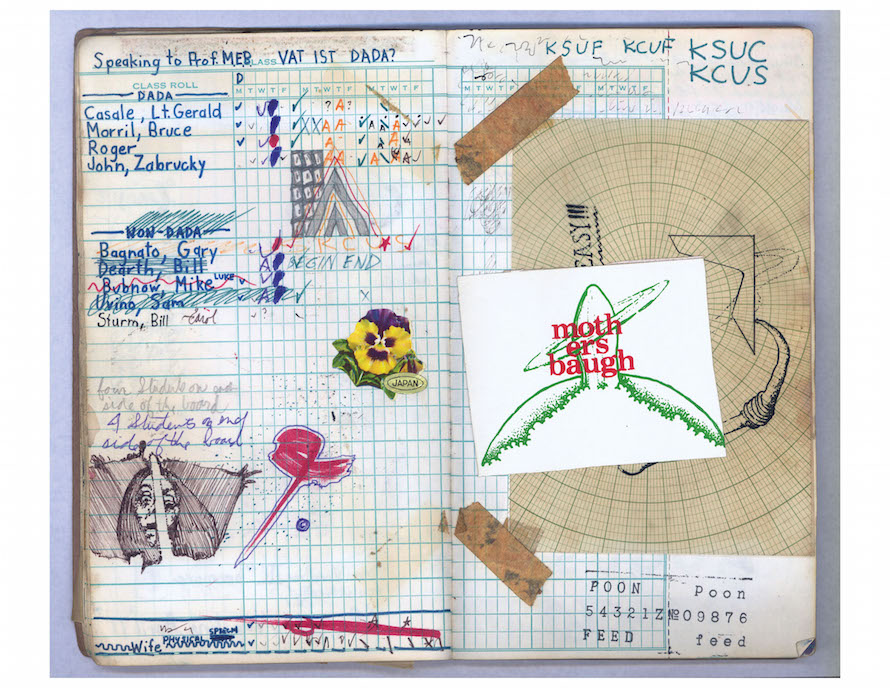 Speaking to Prof. MEB CLASS VAT IST DADA?
D
CLASS ROLL M T W T F M T W T F M T W T F
DADA
Casale, Lt. Gerald
Morril, Bruce
Roger
John, Zabrucky
NON-DADA
KCUS
Bagnato, Gary
Dearth, Bill BEGIN END
Bubnow, Mike LUKE
Uvino, Sam
Sturm, Bill
JAPAN
four students on each
side of the board
4 students on end
side of the board
PHYSICAL SPERM
Wife
KSUF KCUF KSUC
KCUS
M T W T F M T W T F
EASY!!!
moth
ers
baugh
POON Poon
54321Z №09876
FEED feed